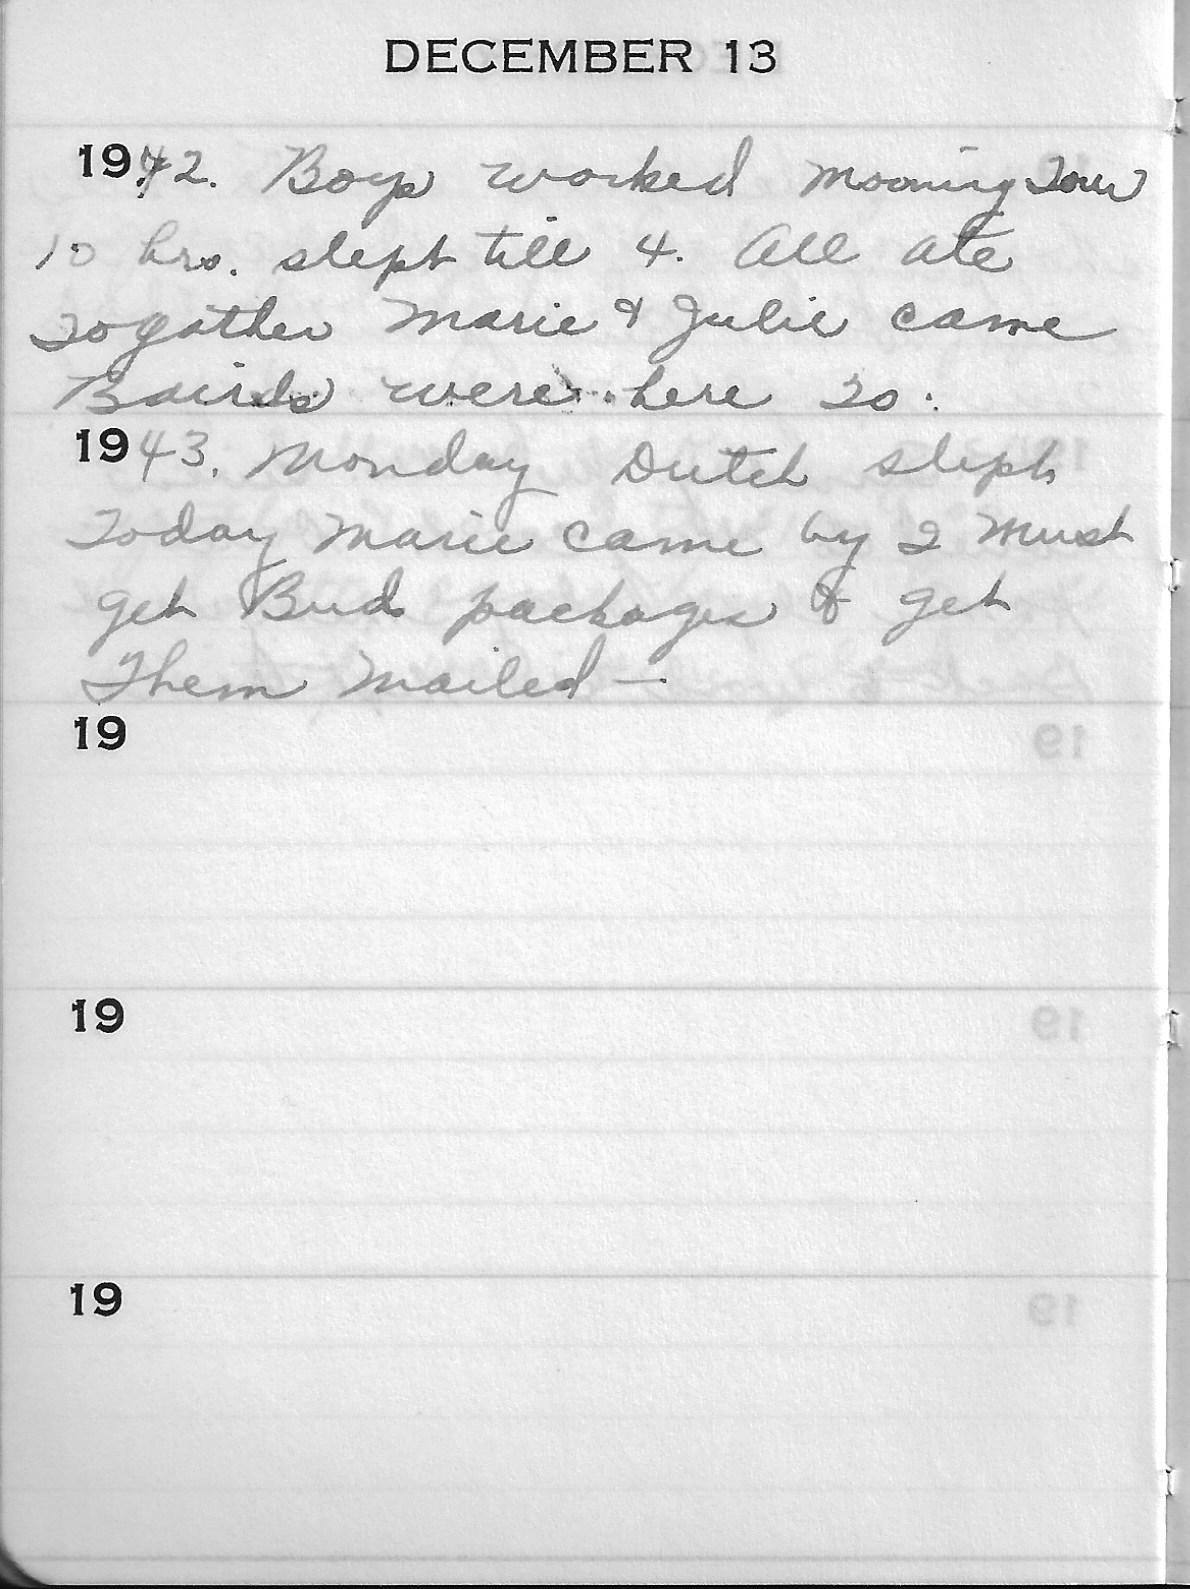 DECEMBER 13
1942. Boys worked Morning Tour
10 hrs. slept till 4. All ate
Togather Marie & Julie came
Bairds were here To.
1943. Monday Dutch slept
Today Marie came by I Must
get Bud packages & get
Them Mailed —
19
19
19